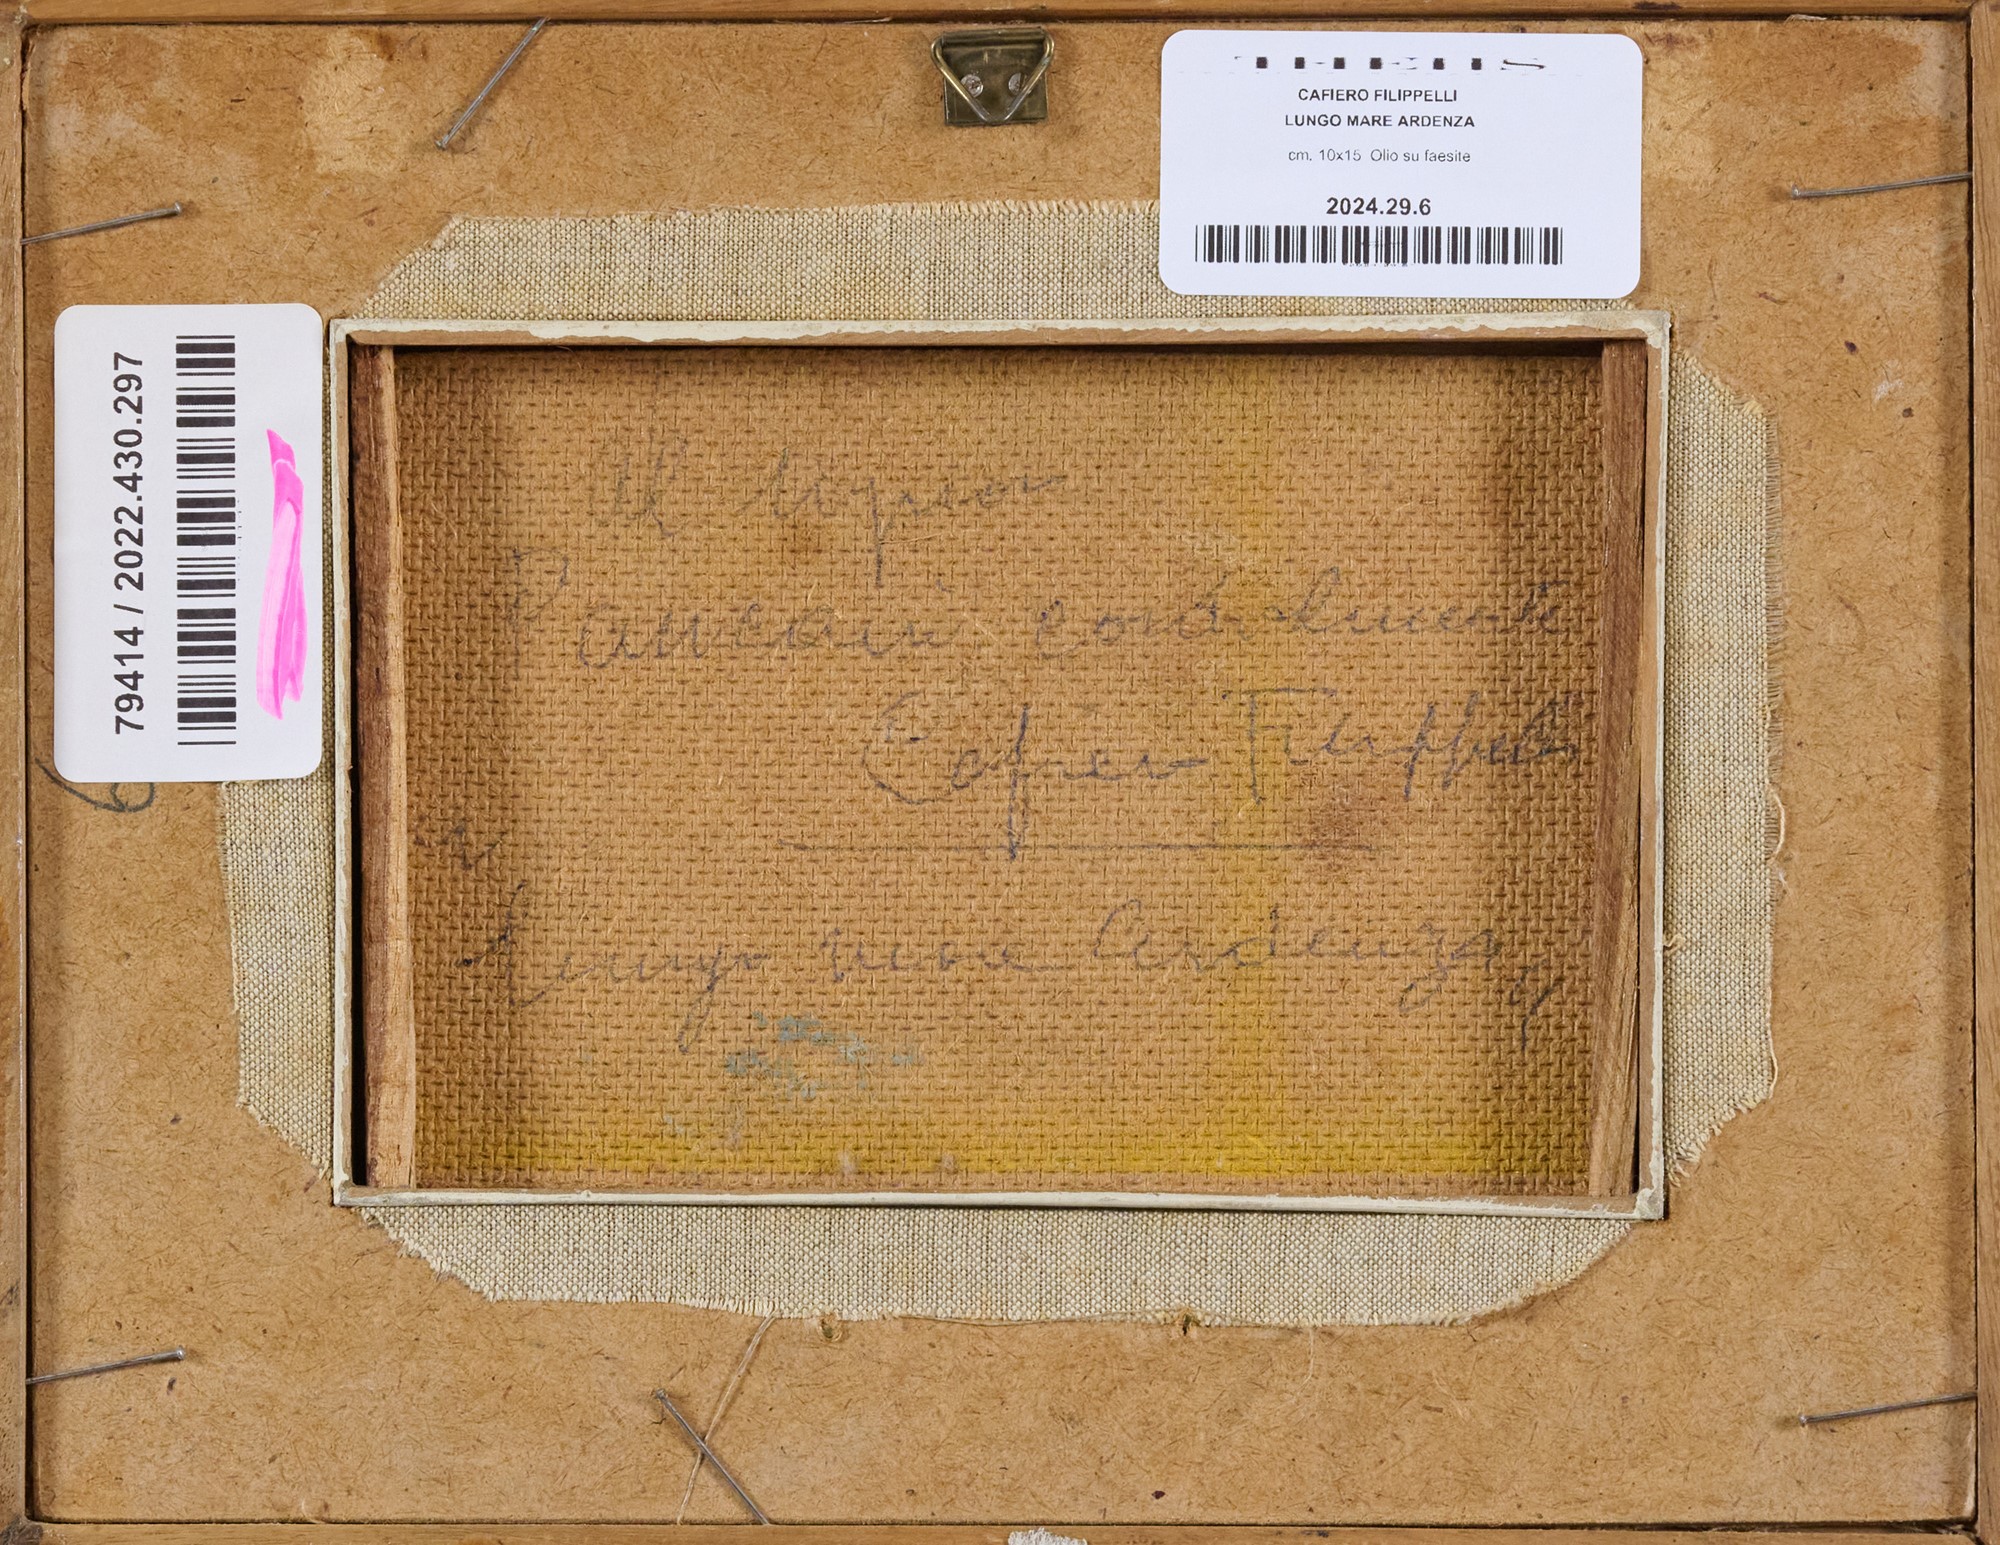 CAFIERO FILIPPELLI
LUNGO MARE ARDENZA
cm. 10x15 Olio su faesite
2024.29.6
79414 / 2022.430.297
Al
Pancani cordialmente
Cafiero Filippelli
Lungo mare Ardenza
6